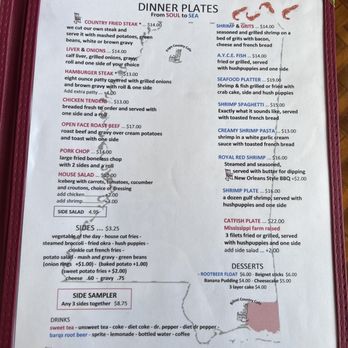 DINNER PLATES
From SOUL to SEA
COUNTRY FRIED STEAK * ... $14.00
we cut our own steak and
serve it with mashed potatoes, green
beans, white or brown gravy
LIVER & ONIONS ... $14.00
calf liver, grilled onions, gravy,
roll and one side of your choice
HAMBURGER STEAK * ... $13.00
eight ounce patty covered with grilled onions
and brown gravy with roll & one side
Add extra patty ... 4.00
CHICKEN TENDERS ... $13.00
breaded fresh to order and served with
one side and a roll
OPEN FACE ROAST BEEF ... $17.00
roast beef and gravy over cream potatoes
and toast with one side
PORK CHOP ... $16.00
large fried boneless chop
with 2 sides and a roll
HOUSE SALAD
Iceberg with carrots, tomatoes, cucumber
and croutons, choice of dressing
add chicken
add shrimp
SIDE SALAD 4.95
SIDES ... $3.25
vegetable of the day - house cut fries -
steamed broccoli - fried okra - hush puppies -
crinkle cut french fries -
potato salad - mash and gravy - green beans
(onion rings +$1.00) - (baked potato +1.00)
(sweet potato fries + $2.00)
cheese .60 - gravy .75
SIDE SAMPLER
Any 3 sides together $8.75
DRINKS
sweet tea - unsweet tea - coke - diet coke - dr. pepper - diet dr pepper -
barqs root beer - sprite - lemonade - bottled water - coffee
SHRIMP & GRITS ... $14.00
seasoned and grilled shrimp on a
bed of grits with bacon,
cheese and french bread
A.Y.C.E. FISH ... $14.00
fried or grilled, served with
hushpuppies and one side
SEAFOOD PLATTER ... $19.00
Shrimp & fish grilled or fried with
crab cake, side and hush puppies
SHRIMP SPAGHETTI ... $15.00
Exactly what it sounds like, served
with toasted french bread
CREAMY SHRIMP PASTA ... $13.00
shrimp in a white garlic cream
sauce with toasted french bread
ROYAL RED SHRIMP ... $16.00
Steamed and seasoned,
served with butter for dipping
New Orleans Style BBQ +$2.00
SHRIMP PLATE ... $16.00
a dozen gulf shrimp, served with
hushpuppies and one side
CATFISH PLATE ... $22.00
Mississippi farm raised
3 filets fried or grilled, served
with hushpuppies and one side
add side salad ... +2.00
DESSERTS
ROOTBEER FLOAT $6.00 - Beignet sticks $6.00
Banana Pudding $4.00 - Cheesecake $5.00
3 layer cake $4.00